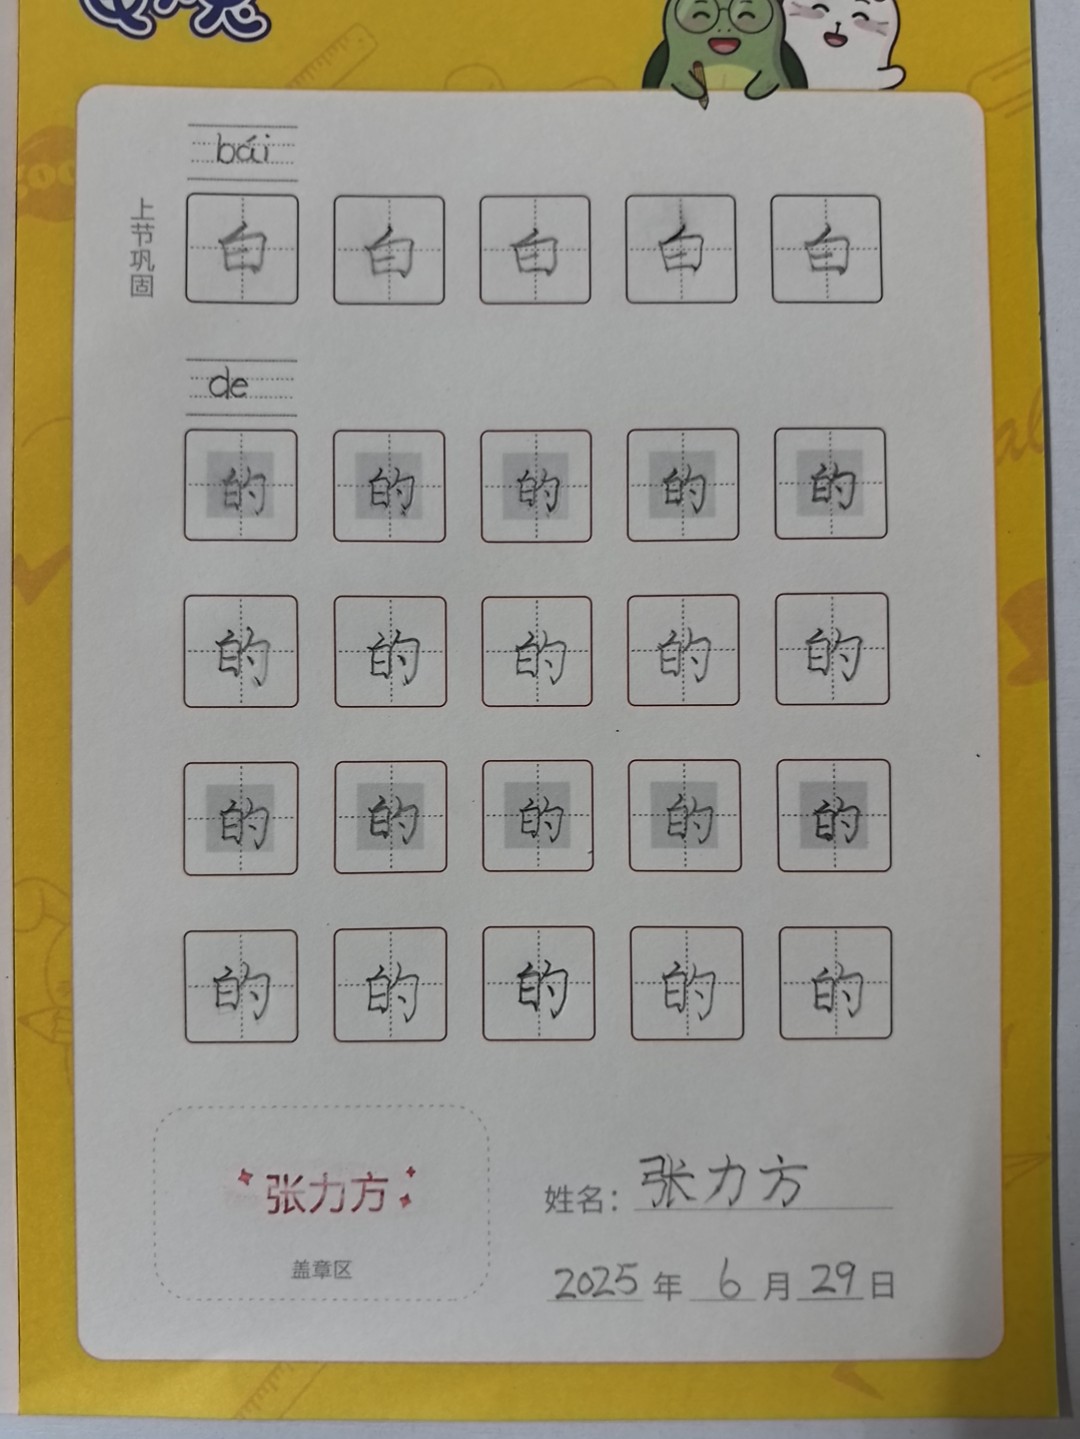 bái
上节巩固
白 白 白 白 白
de
的 的 的 的 的
的 的 的 的 的
的 的 的 的 的
的 的 的 的 的
张力方
盖章区
姓名：张力方
2025年 6 月 29 日